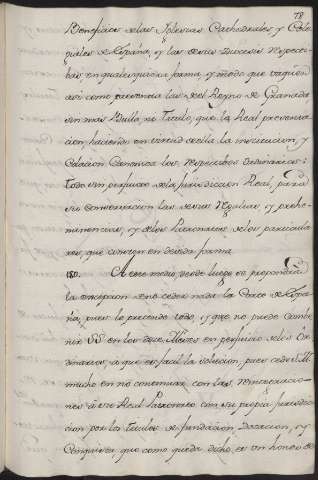 78
Beneficios de las Iglesias Cathedrales, y Cole
giales de España, y las de sus Diocesis respecti-
bas en qualesquiera forma, y modo que vaquen
asi como presenta las del Reyno de Granada
sin mas Bula, ni Titulo, que la Real presenta-
cion, haciendo en virtud de ella la institucion, y
Colacion Canonica los respectivos Ordinarios:
todo sin perjuicio de la Jurisdiccion Real, para
su conservacion las de sus Regalias, y prehe-
minencias, y de los Patronatos de los particula
res, que consten en devida forma
150. A este medio, desde luego se propondrá
la excepcion de no ceder nada la Corte de
pues lo pretende todo, y que no puede combe
nir SS en los ocho Meses en perjuicio de los Or
dinarios, á que es facil la solucion, pues cede S.M.
mucho en no continuar con las
à su Real Patronato con su propia Jurisdic
cion por los Titulos de fundacion, Dotacion, y
Conquista que como queda dicho, es un honor de